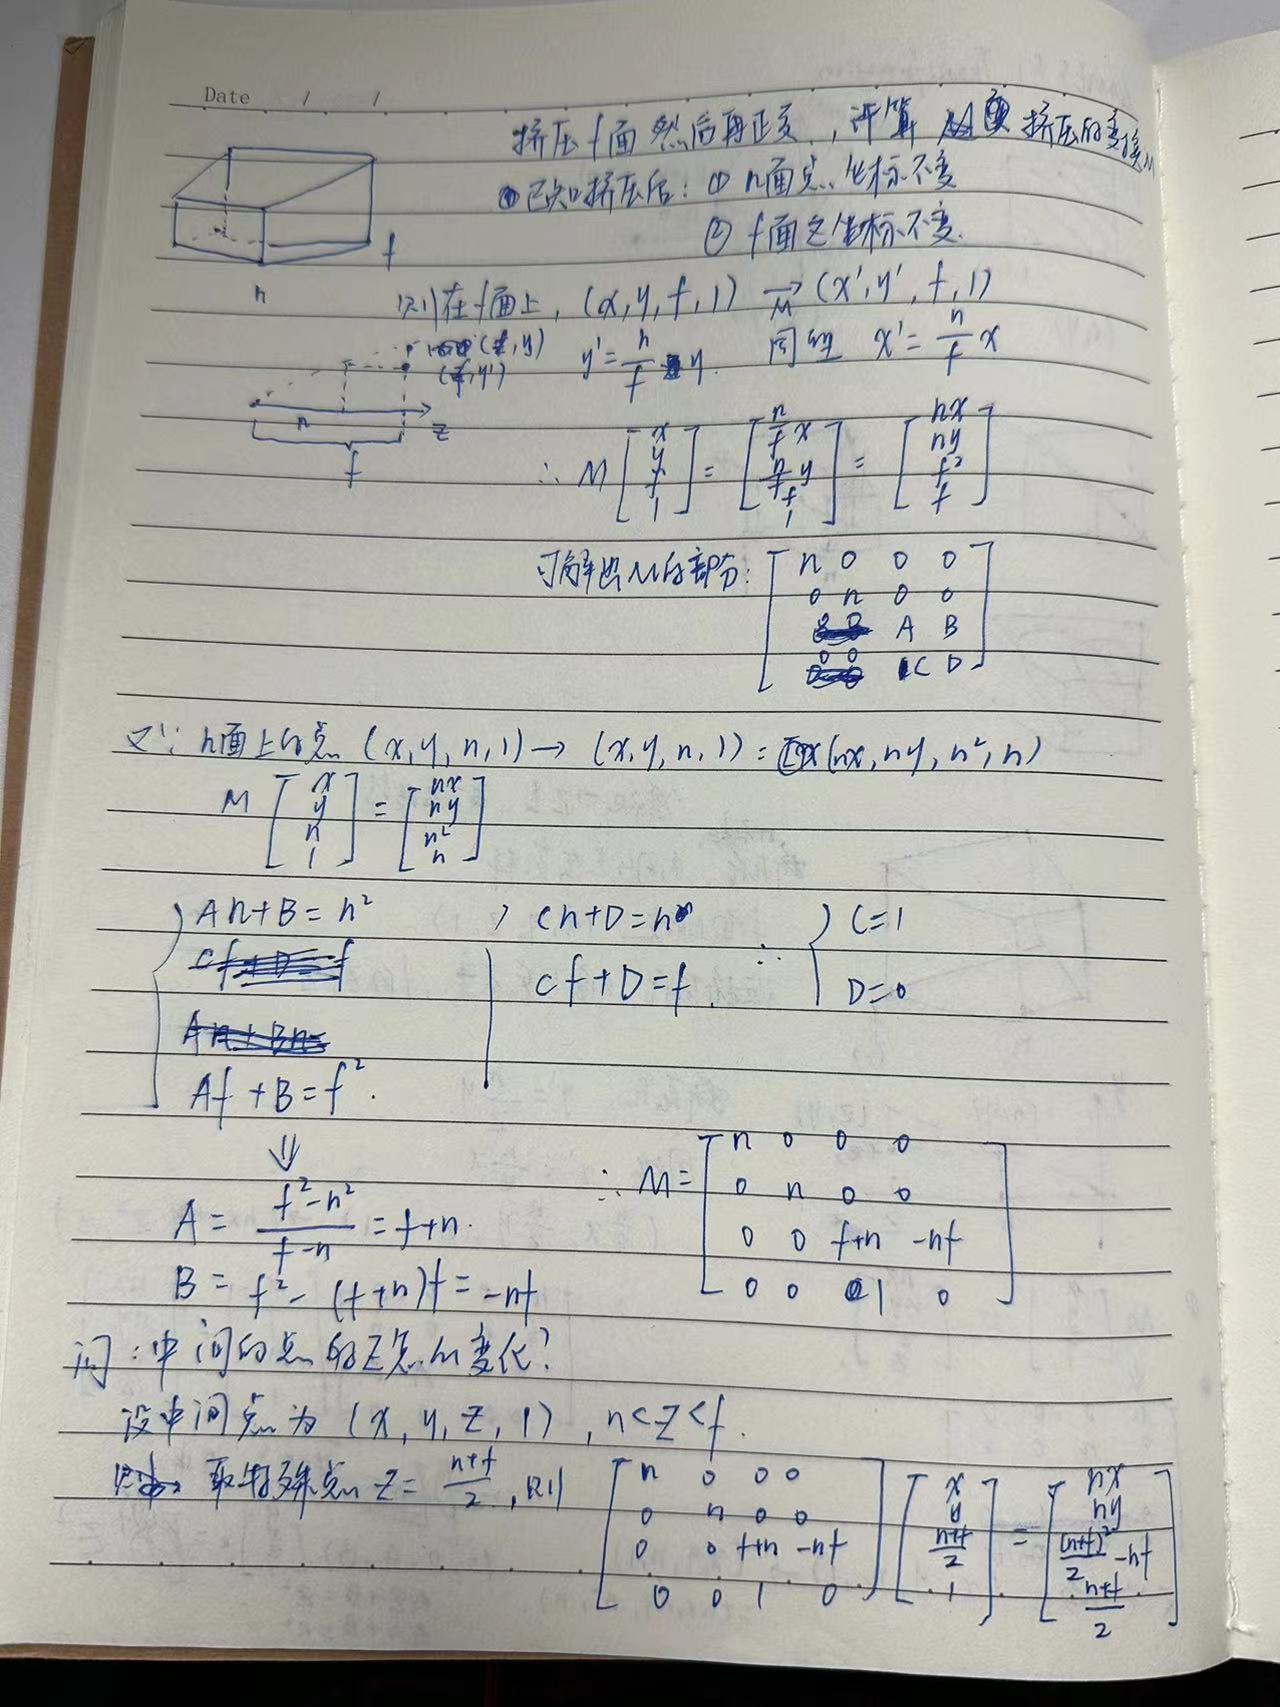 Date / /
挤压f面然后再正交,计算挤压的变换M
已知挤压后:① n面点坐标不变
② f面Z坐标不变.
f
n
则在f面上,(x,y,f,1) →M (x',y',f,1)
(f,y)
(f,y')
y'= n/f y. 同理 x'= n/f x
n
z
f
∴ M [x y f 1] = [n/f x n/f y f 1] = [nx ny f² f]
可解出M的部分: [n 0 0 0
0 n 0 0
0 0 A B
0 0 C D]
又∵ n面上的点 (x,y,n,1) → (x,y,n,1) = (nx,ny,n²,n)
M [x y n 1] = [nx ny n² n]
An+B=n² , Cn+D=n ∴ C=1
Af+B=f². Cf+D=f. D=0
⇓
A= (f²-n²)/(f-n) = f+n.
B= f²-(f+n)f = -nf
∴ M= [n 0 0 0
0 n 0 0
0 0 f+n -nf
0 0 1 0]
问:中间的点的Z怎么变化?
设中间点为 (x,y,z,1) , n<z<f.
取特殊点 z= (n+f)/2 , 则
[n 0 0 0
0 n 0 0
0 0 f+n -nf
0 0 1 0] [x y (n+f)/2 1] = [nx ny (n+f)²/2 -nf (n+f)/2]